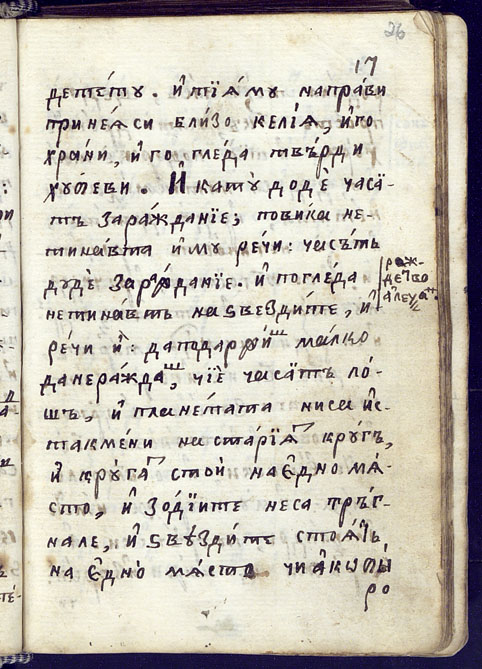 26
17
детѣту. и҆ тїѧ́му напра́ви
при неѧ́ си бли́зо келїѧ, и҆ го
хра́ни, и҆ го гле́да твъ́рди
хубеви. И҆ като̀ додѐ часа̀-
тъ заражданїе, пови́ка не-
тина́вта и҆ му рѐчи: часъ́тъ
дудѐ зара́жданїе. и҆ погле́да
нетина́втъ на ѕвезди́те, и҆
ре́чи и҆: да подаржи́ш ма́лко
да не ра́ждаш, чїѐ часа̀тъ ло́-
шъ, и҆ плане́тата ниса и҆с-
такме́ни на ста́рїѧт кру́гъ,
и҆ кру́гат стоѝ на є҆дно мѧ́-
сто, и҆ зо́дїите не са тръ́г-
нале, и҆ ѕвѣзди́те стоѧ́тъ
на є҆дно̀ мѧ́сто чи а҆ко ты̀
ро
раж-
де́тво
а҆леѯан.